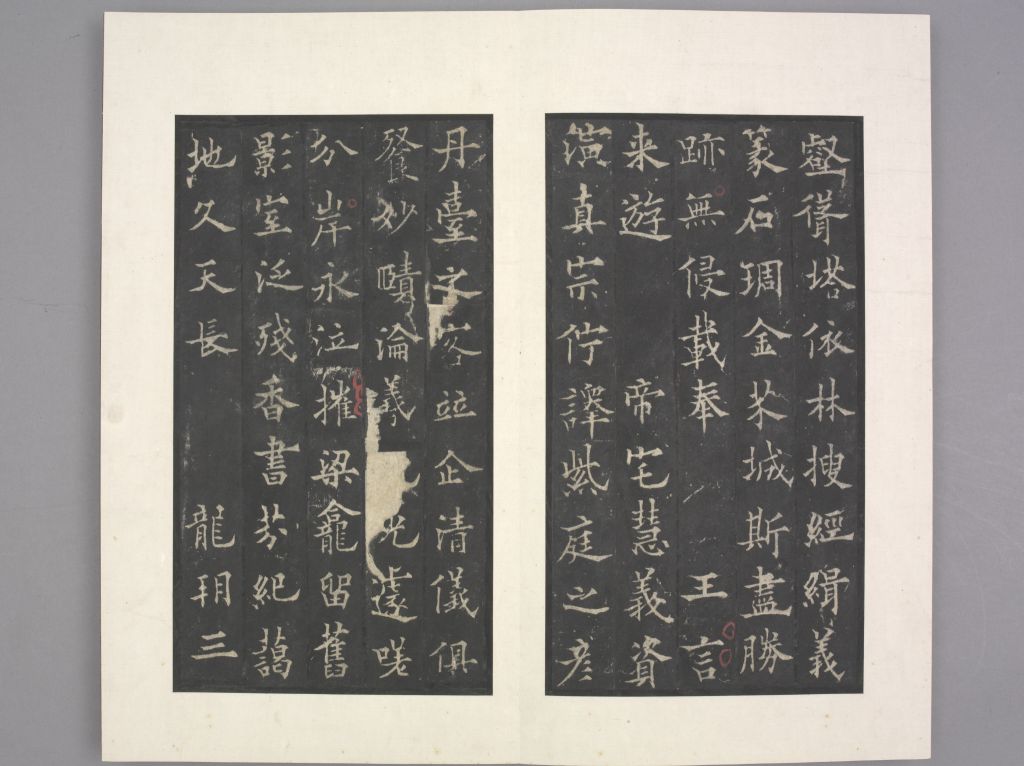 壑聳塔依林搜經緝義
篆石琱金芥城斯盡勝
跡無侵載奉 王言
来遊 帝宅慧義資
演真宗佇譯紫庭之彥
丹臺文客並企清儀俱
餐妙賾淪羲光遽嗟
分岸永泣摧梁龕留舊
影室泛殘香書芬紀藹
地久天長 龍朔三